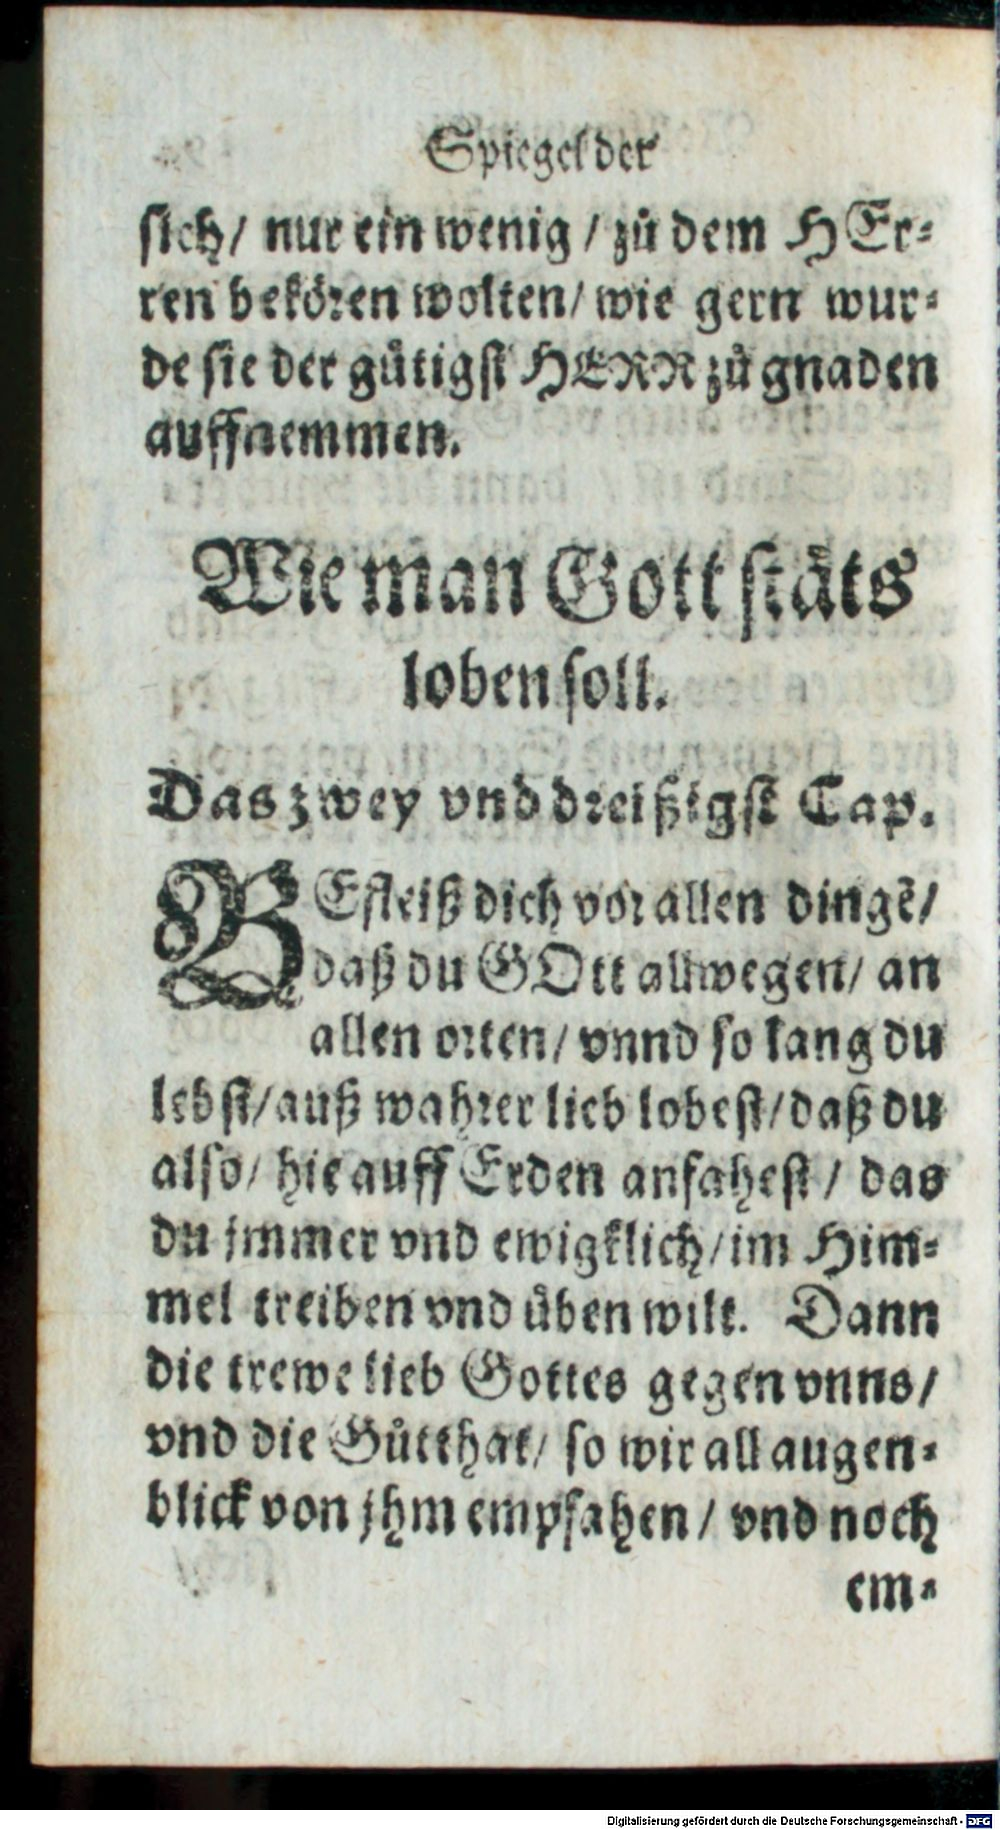 Spiegel der
sich/ nur ein wenig / zů dem HEr⸗
ren bekören wolten/ wie gern wur⸗
de sie der gůtigst HERR zů gnaden
auffnemmen.
Wie man Gott stäts
loben soll.
Das zwey vnd dreißigst Cap.
BEfleiß dich vor allen dingẽ/
daß du GOtt allwegen/ an
allen orten/ vnnd so lang du
lebst/ auß wahrer lieb lobest/ daß du
also/ hie auff Erden anfahest / das
du jmmer vnd ewigklich/ im Him⸗
mel treiben vnd üben wilt. Dann
die trewe lieb Gottes gegen vnns/
vnd die Gůtthat/ so wir all augen⸗
blick von jhm empfahen / vnd noch
em⸗
Digitalisierung gefördert durch die Deutsche Forschungsgemeinschaft - DFG